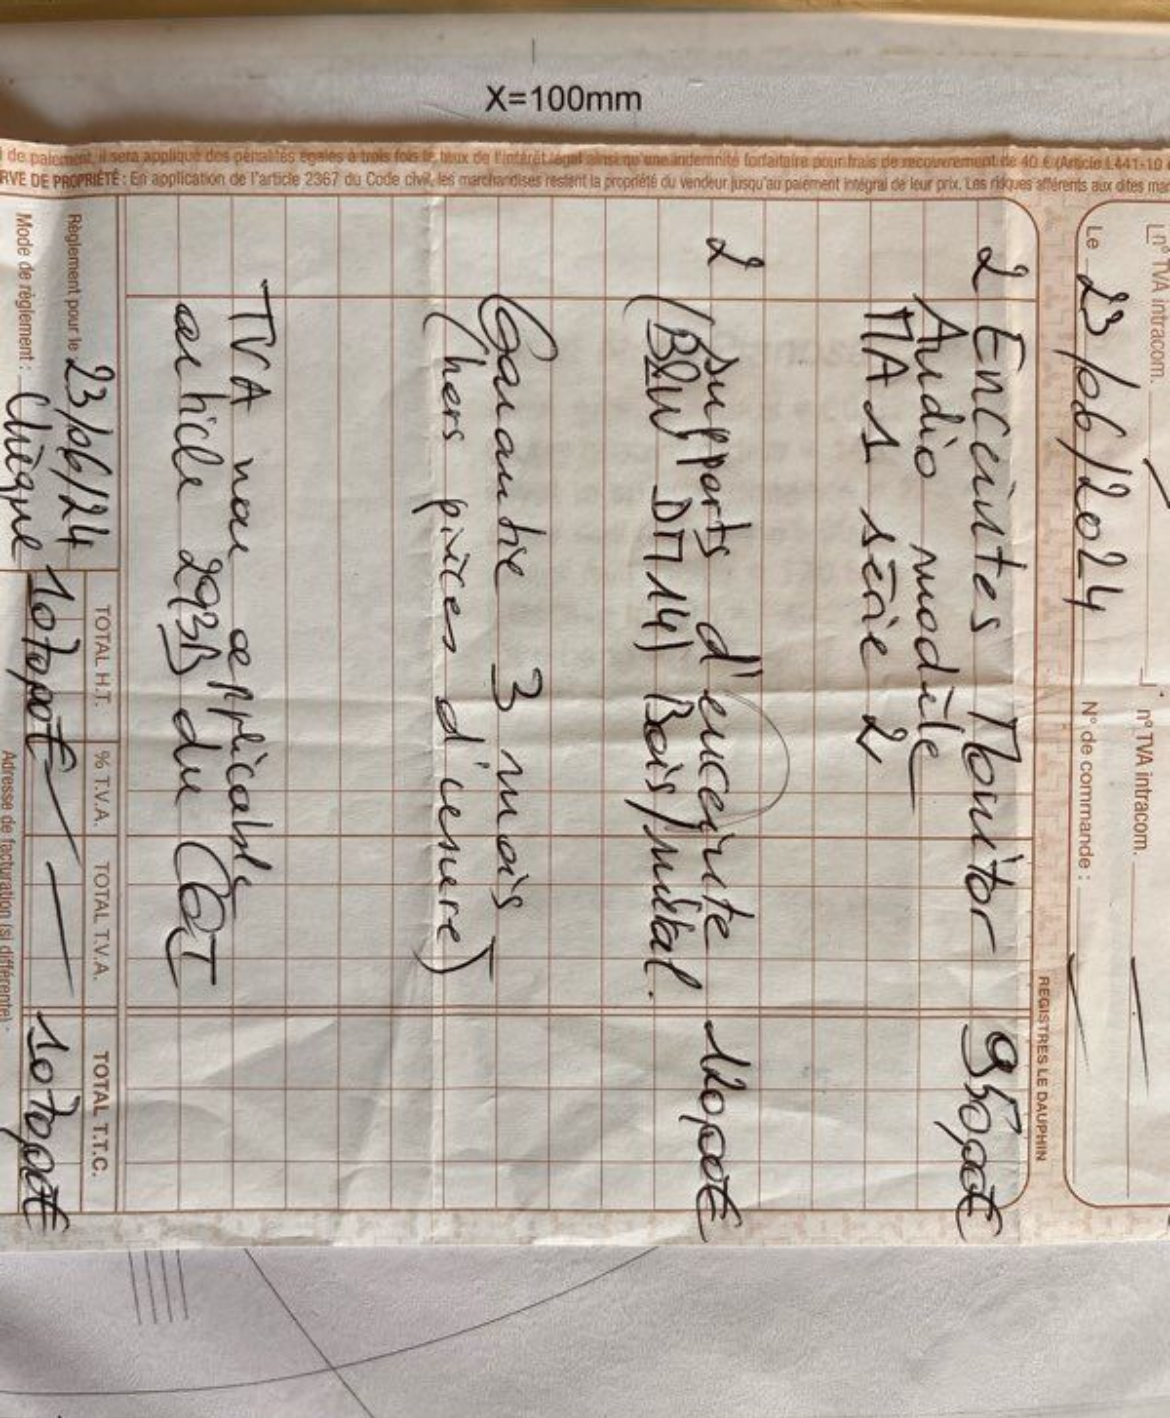 X=100mm
n° TVA intracom.
n° TVA intracom.
Le 23/06/2024 N° de commande :
REGISTRES LE DAUPHIN
2 Enceintes Monitor 950,00€
Audio modèle
MA 1 série 2
2 supports d'enceinte 120,00€
(B&W DM14) Bois/métal.
Garantie 3 mois
(hors pièces d'usure)
TVA non applicable
article 293B du CGI
TOTAL H.T. % T.V.A. TOTAL T.V.A. TOTAL T.T.C.
Règlement pour le 23/06/24
1070,00€ 1070,00€
Mode de règlement : Chèque
Adresse de facturation (si différente) :
de paiement, il sera appliqué des pénalités égales à trois fois le taux de l'intérêt légal ainsi qu'une indemnité forfaitaire pour frais de recouvrement de 40 € (Article L441-10
RVE DE PROPRIÉTÉ : En application de l'article 2367 du Code civil, les marchandises restent la propriété du vendeur jusqu'au paiement intégral de leur prix. Les risques afférents aux dites mar